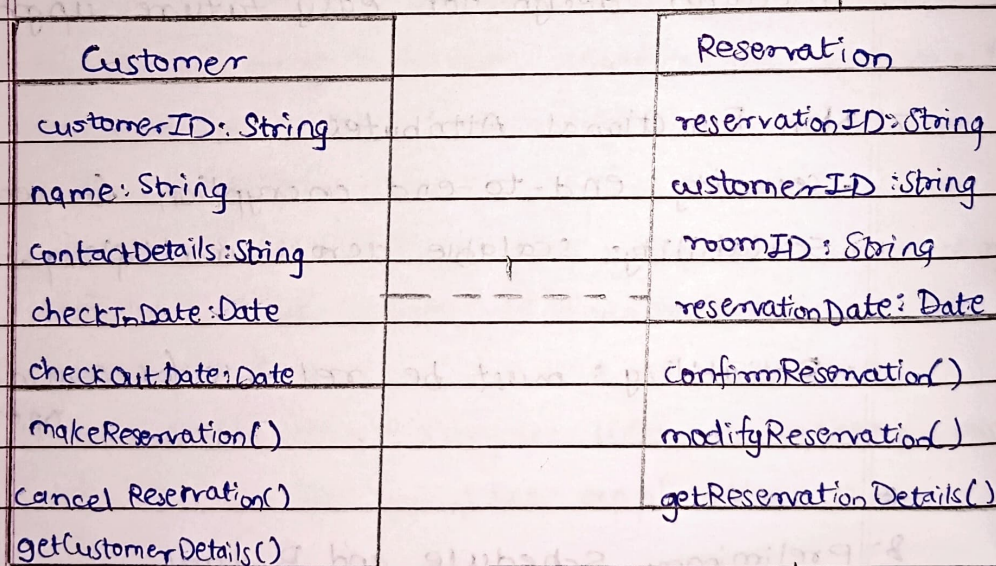 Customer
customerID: String
name: String
contactDetails: String
checkInDate: Date
checkOutDate: Date
makeReservation()
cancel Reservation()
getCustomerDetails()
Reservation
reservationID: String
customerID: String
roomID: String
reservationDate: Date
confirmReservation()
modifyReservation()
getReservationDetails()